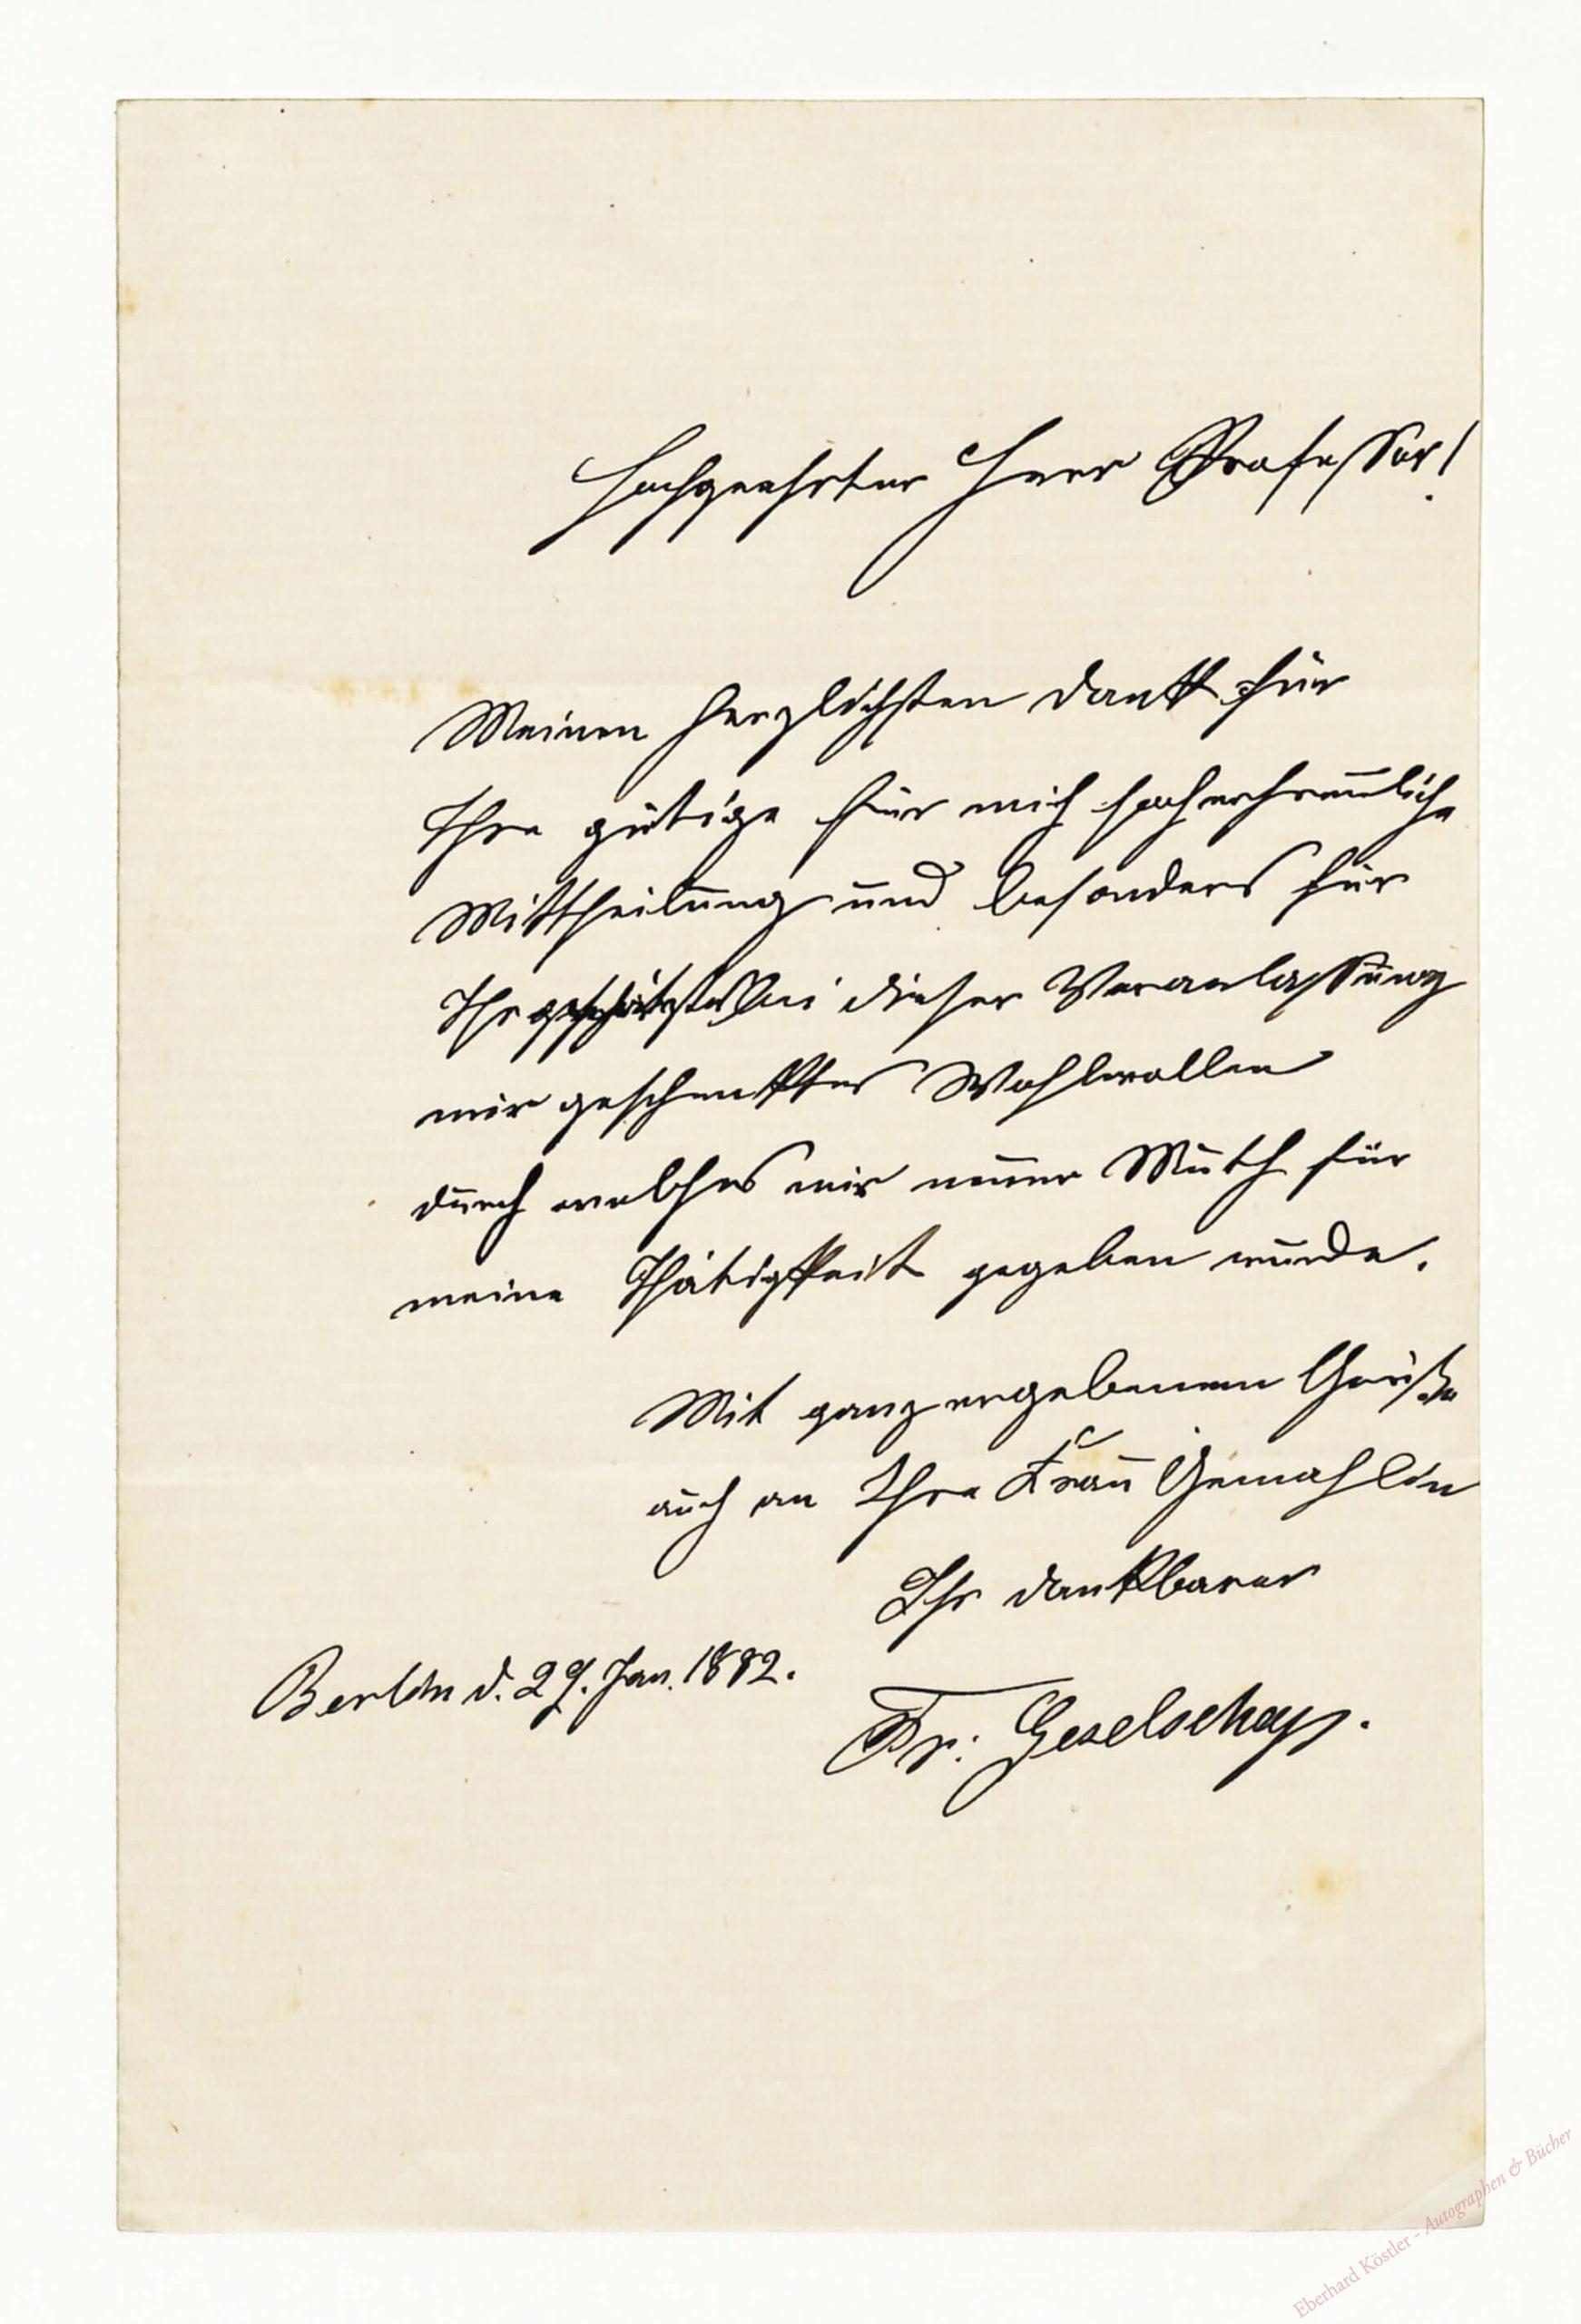 Hochgeehrter Herr Professor!
Meinen herzlichsten Dank für
Ihre gütige für mich hocherfreuliche
Mittheilung und besonders für
Ihr bei dieser Veranlassung
mir geschenktes Wohlwollen
durch welches mir neuer Muth für
meine Thätigkeit gegeben wurde.
Mit ganz ergebenem Gruße
auch an Ihre Frau Gemahlin
Ihr dankbarer
Berlin d. 29. Jan. 1882.
Fr: Geselschap.
Eberhard Köstler - Autographen & Bücher